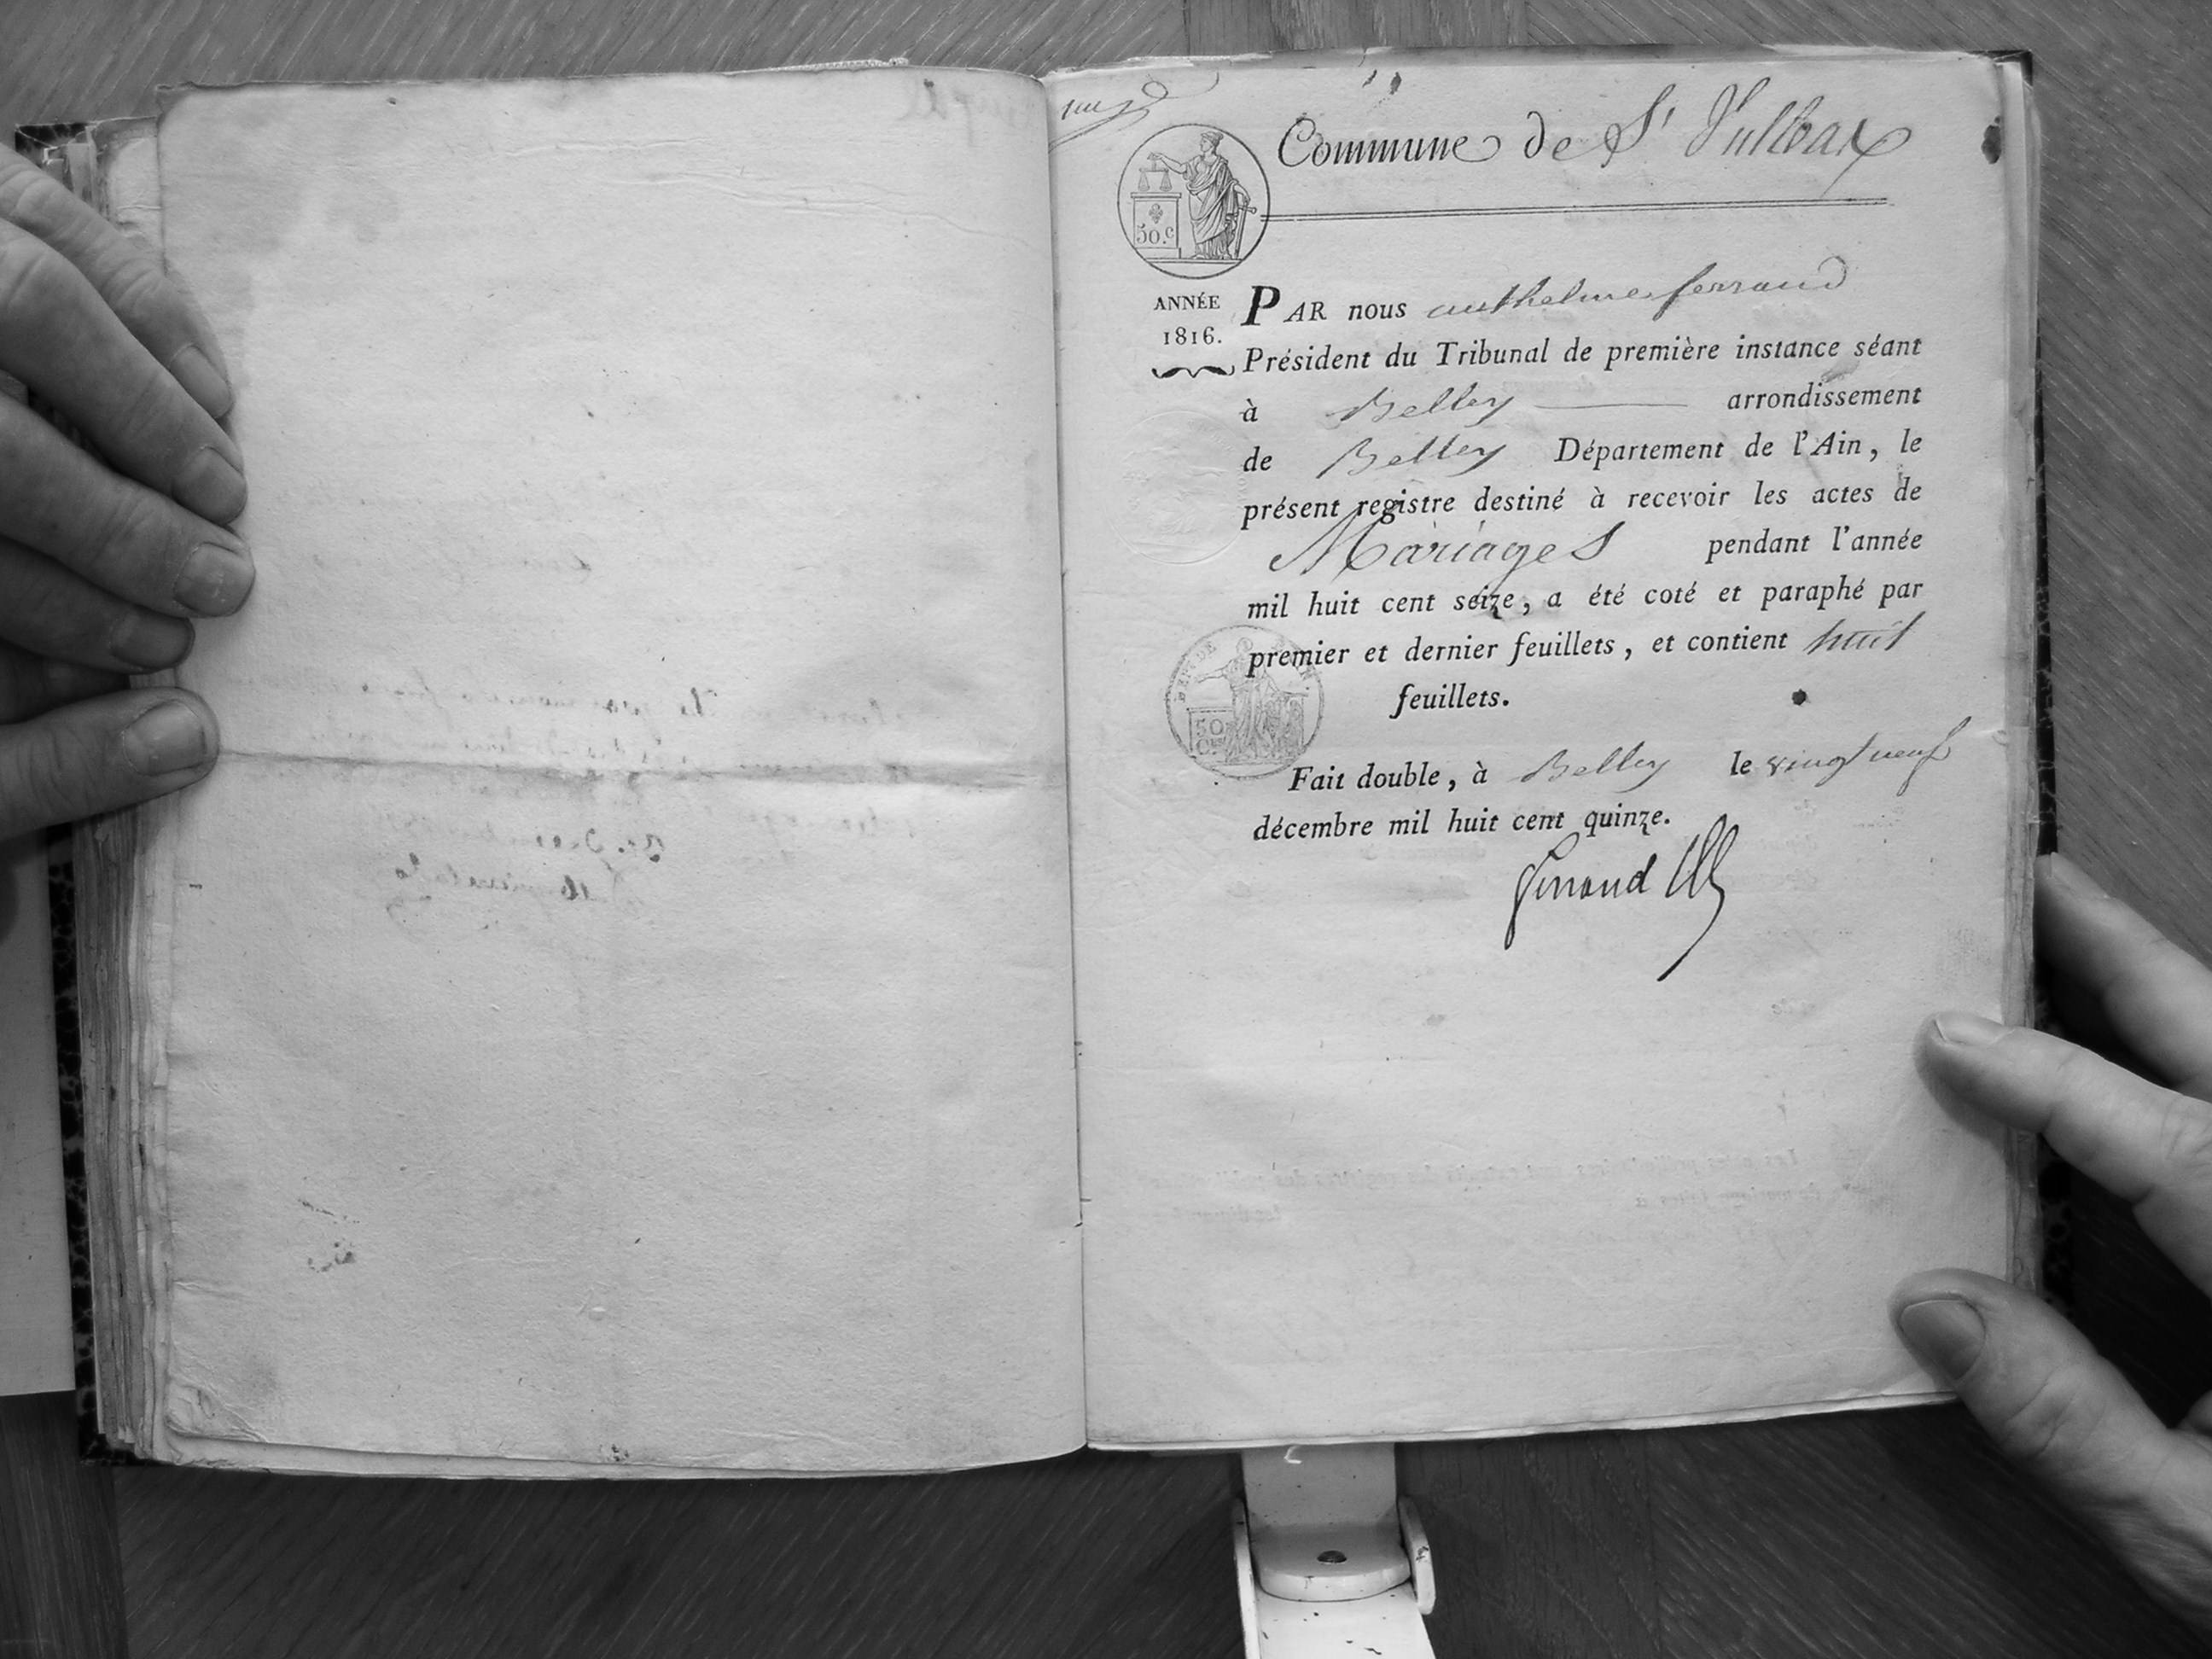 Commune de St Vulbax
50.c
ANNÉE
1816.
PAR nous anthelme ferrand
Président du Tribunal de première instance séant
à Belley arrondissement
de Belley Département de l'Ain, le
présent registre destiné à recevoir les actes de
Mariages pendant l'année
mil huit cent seize, a été coté et paraphé par
premier et dernier feuillets, et contient huit
feuillets.
50
Fait double, à Belley le vingt neuf
décembre mil huit cent quinze.
ferrand